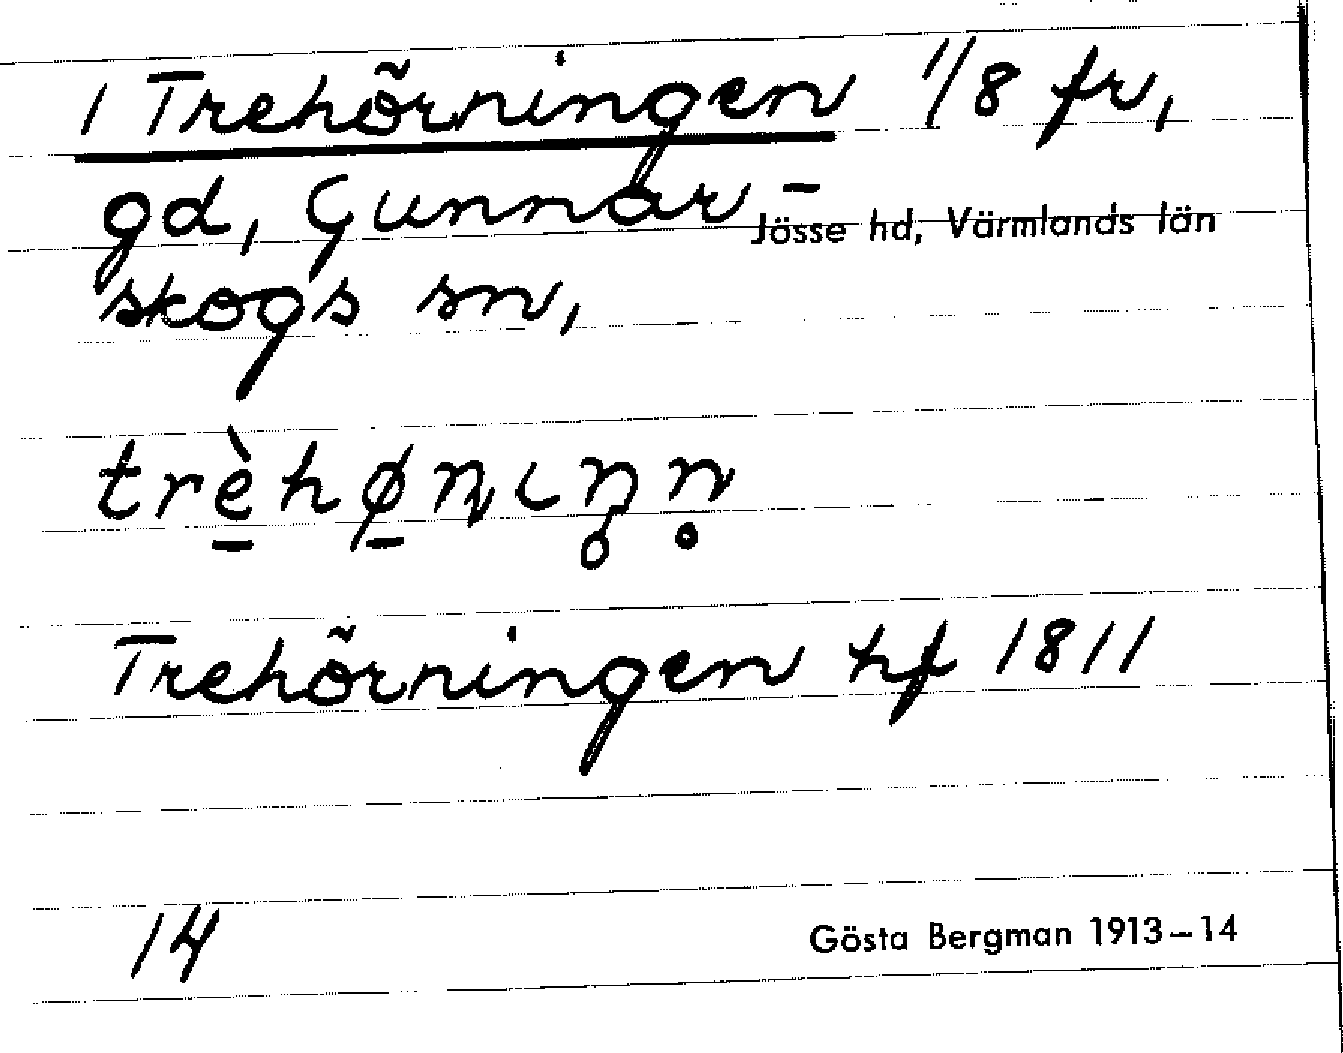 1 Trehörningen 1/8 fr,
gd, Gunnar-
Jösse hd, Värmlands län
skogs sn,
trèhøn̨ıŋn̥
Trehörningen hf 1811
14
Gösta Bergman 1913–14